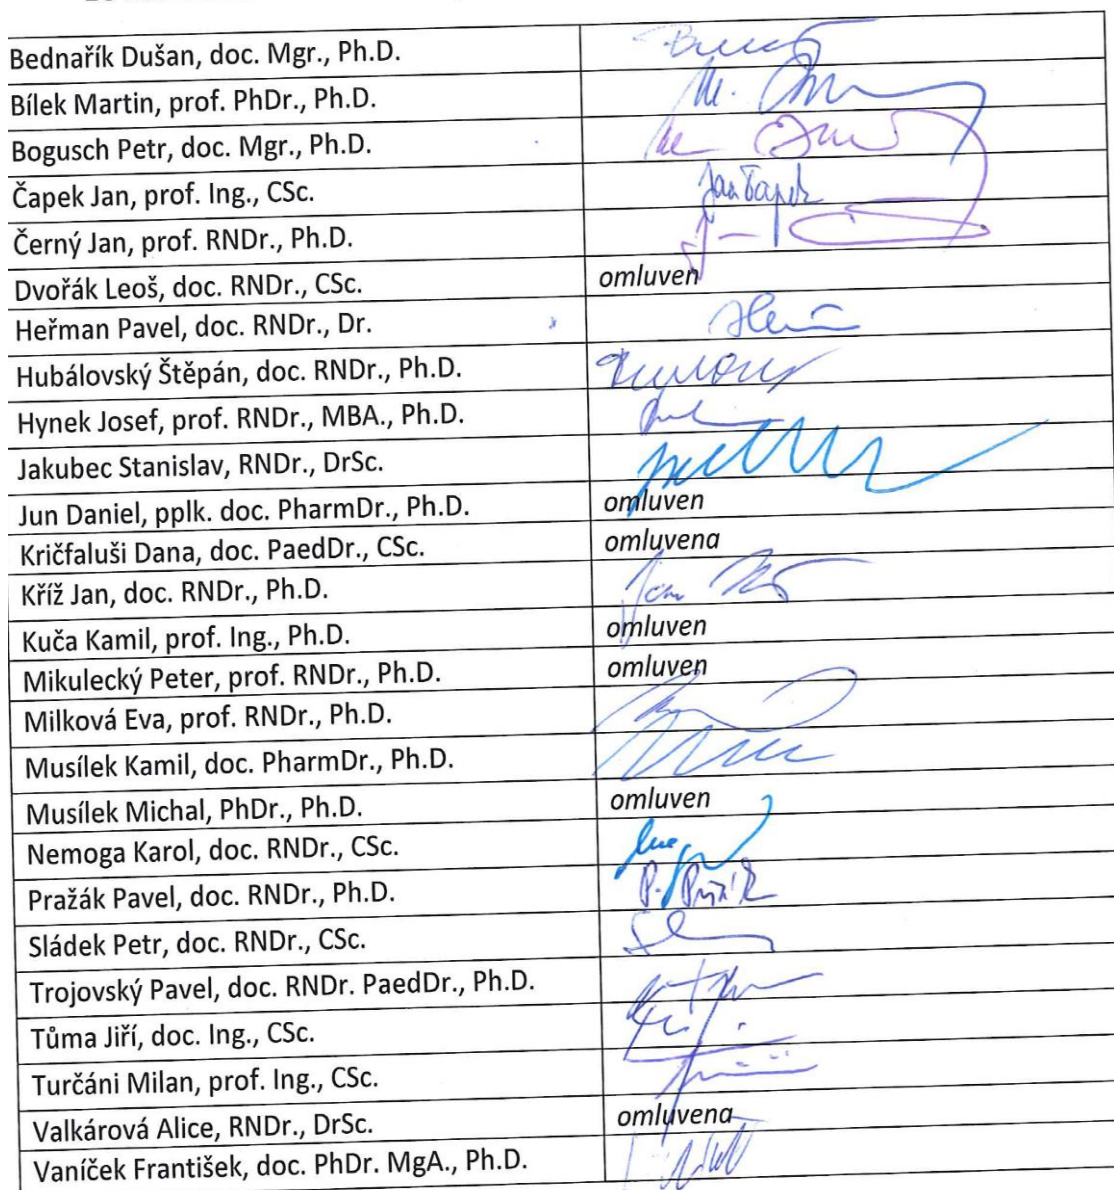 Bednařík Dušan, doc. Mgr., Ph.D.
Bílek Martin, prof. PhDr., Ph.D.
Bogusch Petr, doc. Mgr., Ph.D.
Čapek Jan, prof. Ing., CSc. Jan Čapek
Černý Jan, prof. RNDr., Ph.D.
Dvořák Leoš, doc. RNDr., CSc. omluven
Heřman Pavel, doc. RNDr., Dr.
Hubálovský Štěpán, doc. RNDr., Ph.D.
Hynek Josef, prof. RNDr., MBA., Ph.D.
Jakubec Stanislav, RNDr., DrSc.
Jun Daniel, pplk. doc. PharmDr., Ph.D. omluven
Kričfaluši Dana, doc. PaedDr., CSc. omluvena
Kříž Jan, doc. RNDr., Ph.D. Jan
Kuča Kamil, prof. Ing., Ph.D. omluven
Mikulecký Peter, prof. RNDr., Ph.D. omluven
Milková Eva, prof. RNDr., Ph.D.
Musílek Kamil, doc. PharmDr., Ph.D.
Musílek Michal, PhDr., Ph.D. omluven
Nemoga Karol, doc. RNDr., CSc.
Pražák Pavel, doc. RNDr., Ph.D. P. Pražák
Sládek Petr, doc. RNDr., CSc.
Trojovský Pavel, doc. RNDr. PaedDr., Ph.D.
Tůma Jiří, doc. Ing., CSc.
Turčáni Milan, prof. Ing., CSc.
Valkárová Alice, RNDr., DrSc. omluvena
Vaníček František, doc. PhDr. MgA., Ph.D.